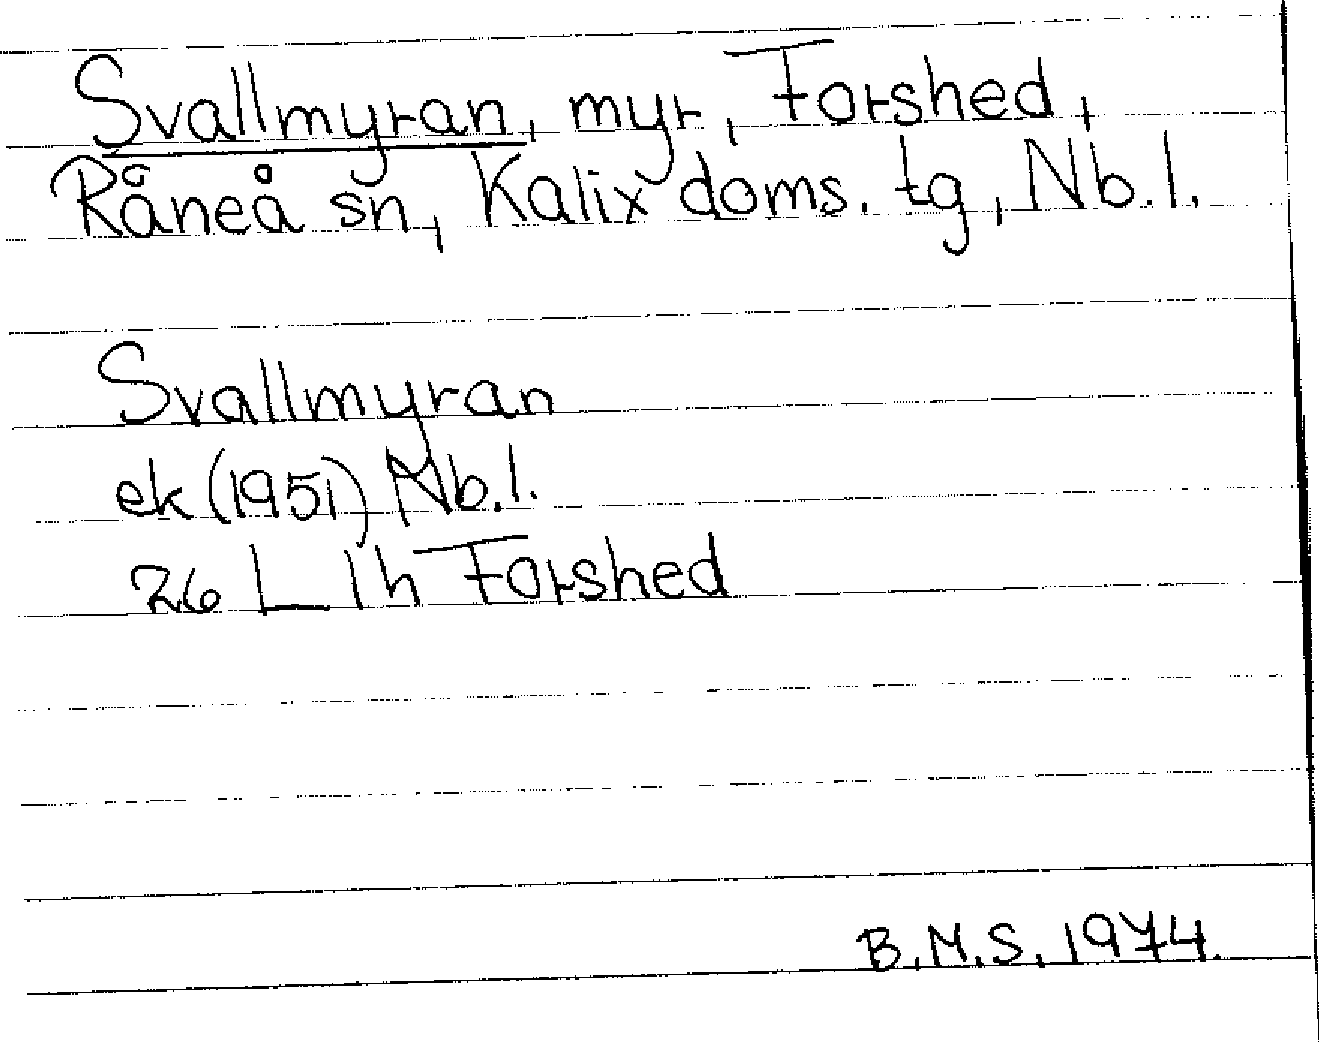 Svallmyran, myr, Forshed,
Råneå sn, Kalix doms. tg, Nb.l.
Svallmyran
ek (1951) Nb.l.
26 L 1h Forshed
B.M.S. 1974.